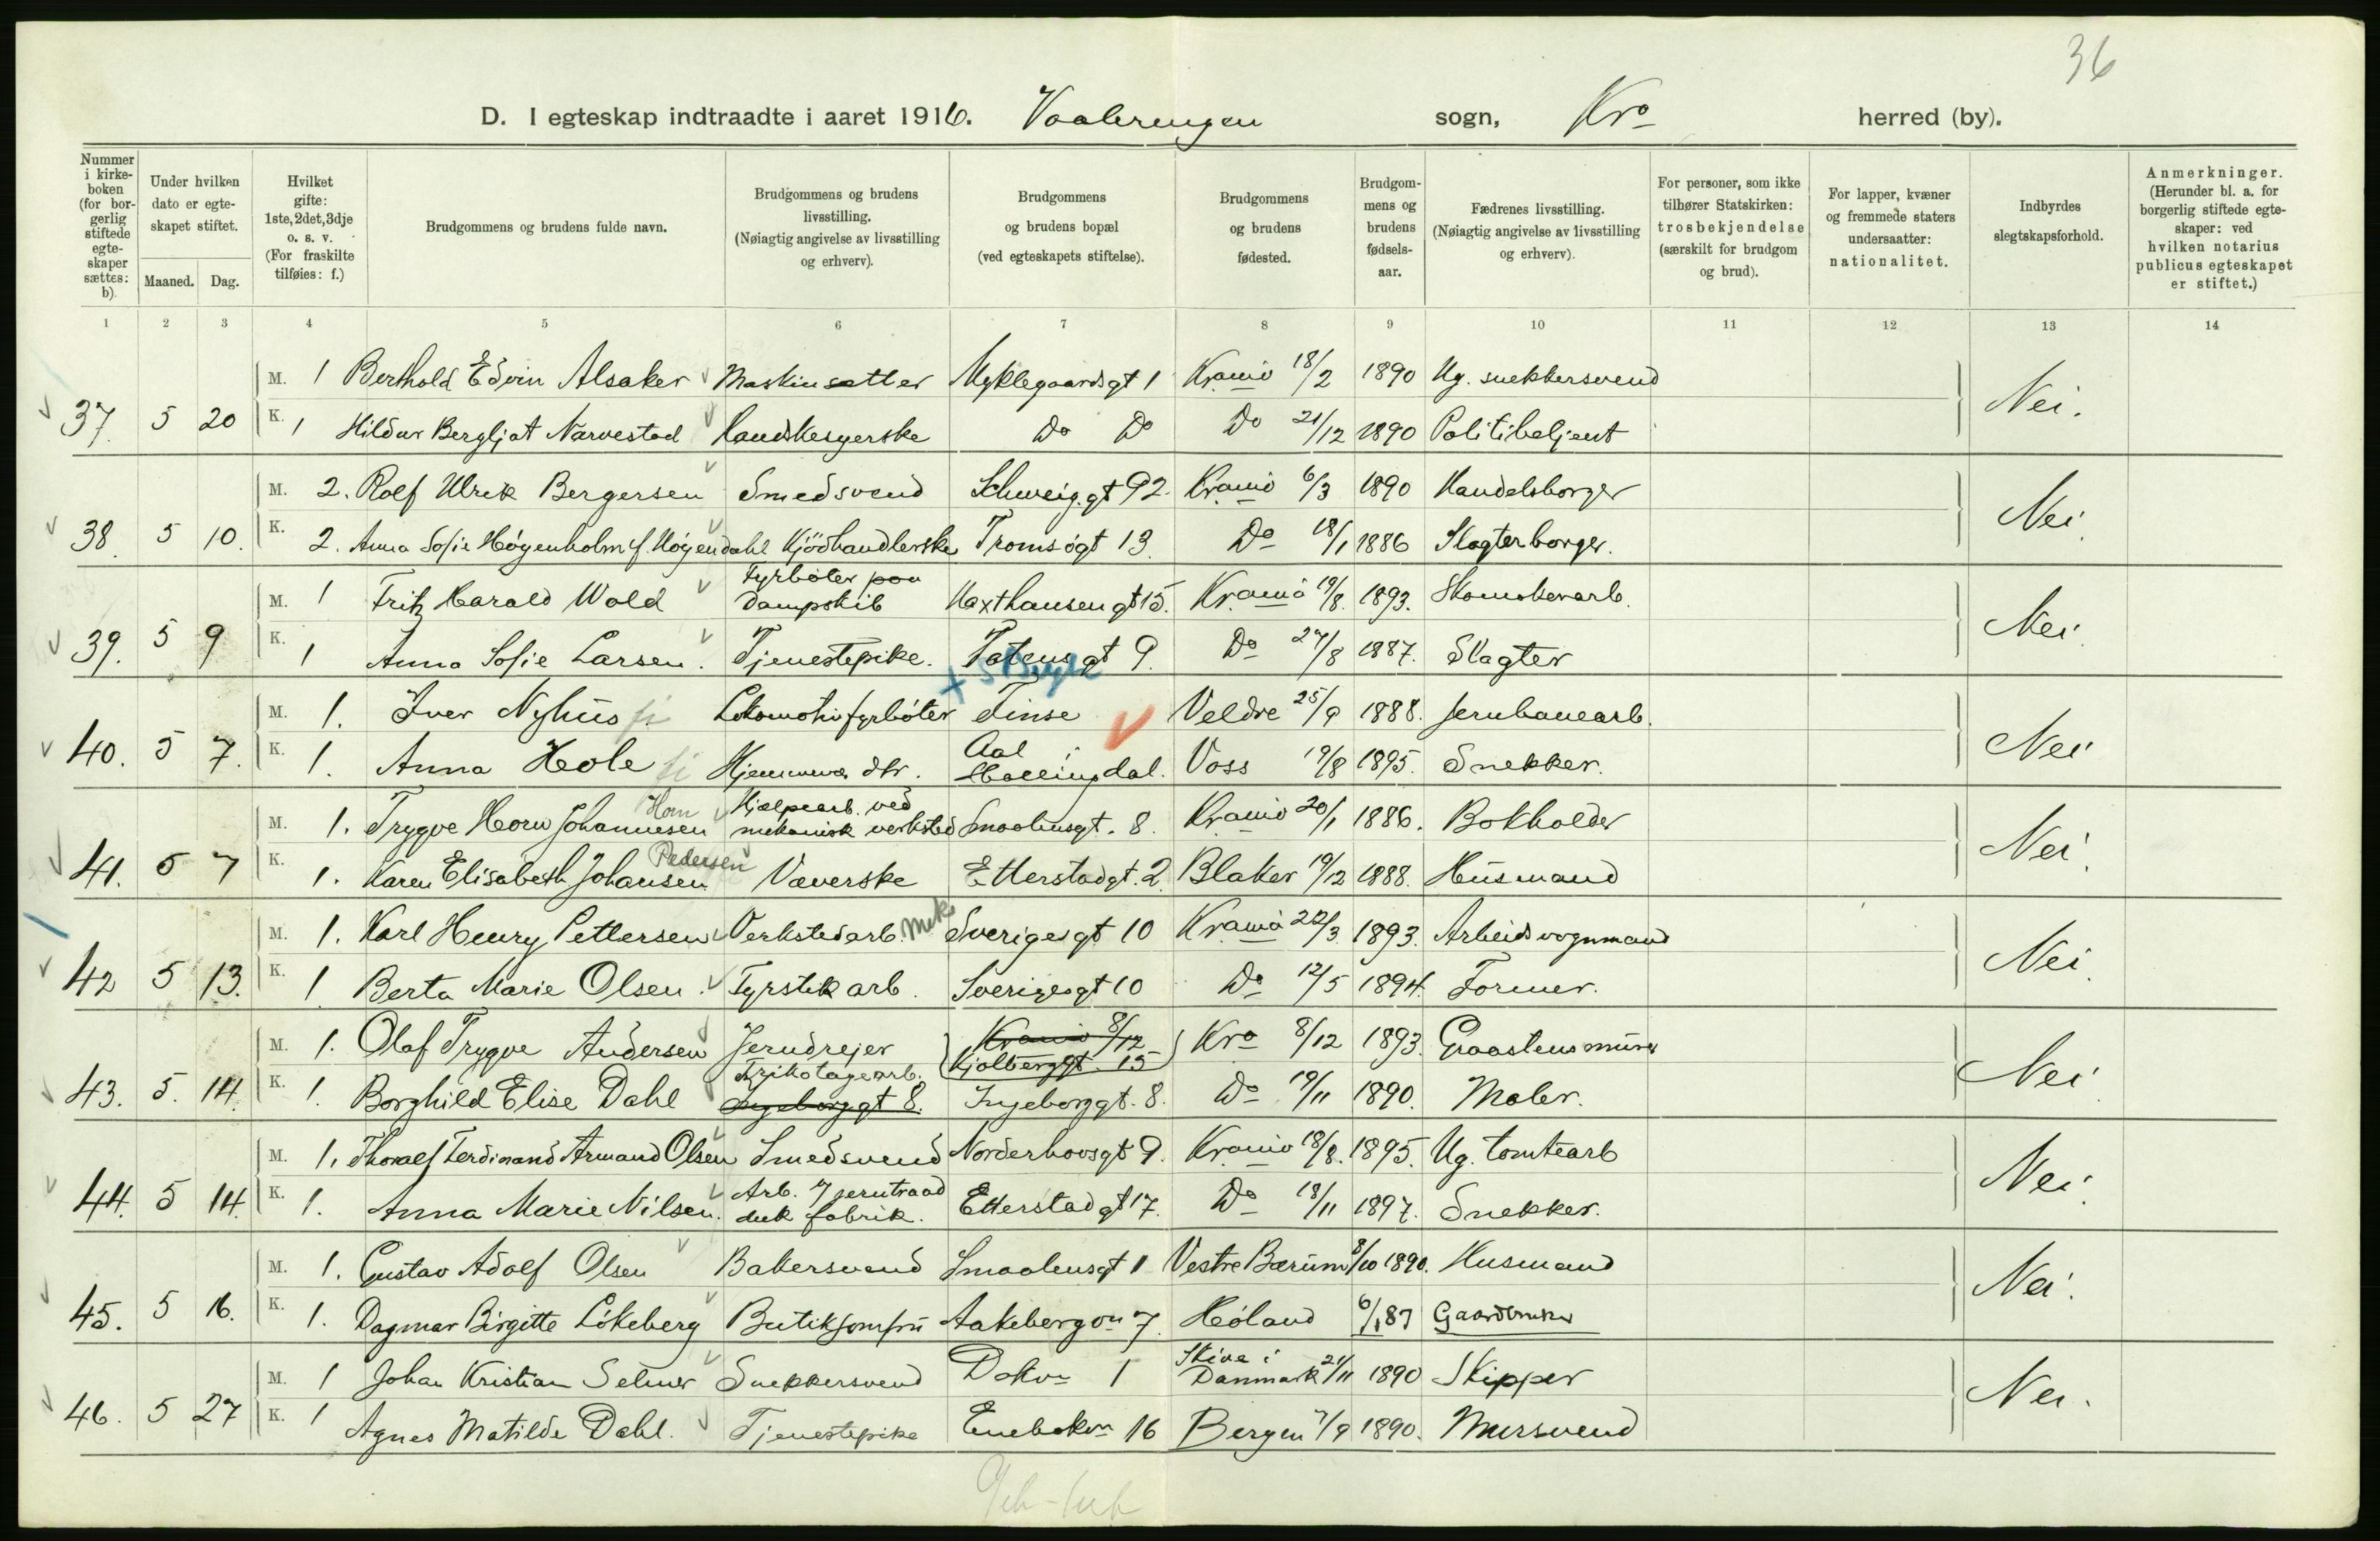 36
D. I egteskap indtraadte i aaret 1916. Vaalerengen sogn, Kra herred (by).
Nummer i kirkeboken (for borgerlig stiftede egteskaper sættes: b).
Under hvilken dato er egteskapet stiftet.
Maaned. Dag.
Hvilket gifte: 1ste, 2det, 3dje o. s. v. (For fraskilte tilføies: f.)
Brudgommens og brudens fulde navn.
Brudgommens og brudens livsstilling. (Nøiagtig angivelse av livsstilling og erhverv).
Brudgommens og brudens bopæl (ved egteskapets stiftelse).
Brudgommens og brudens fødested.
Brudgommens og brudens fødselsaar.
Fædrenes livsstilling. (Nøiagtig angivelse av livsstilling og erhverv).
For personer, som ikke tilhører Statskirken: trosbekjendelse (særskilt for brudgom og brud).
For lapper, kvæner og fremmede staters undersaatter: nationalitet.
Indbyrdes slegtskapsforhold.
Anmerkninger. (Herunder bl. a. for borgerlig stiftede egteskaper: ved hvilken notarius publicus egteskapet er stiftet.)
1 2 3 4 5 6 7 8 9 10 11 12 13 14
M. 1 Berthold Edvin Alsaker Maskinsætter Myklegaardsgt 1 Krania 18/2 1890 Ug. snekkersvend
37. 5 20 K. 1 Hildur Bergljot Narvestad Handskesyerske Do Do Do 21/12 1890 Politibetjent Nei.
M. 2. Rolf Ulrik Bergersen Smedsvend Schweig.gt 92. Krania 6/3 1890 Handelsborger
38. 5 10. K. 2. Anna Sofie Høgenholm f. Høgendahl Kjödhandlerske Tromsøgt 13. Do 18/1 1886 Slagterborger. Nei
M. 1 Fritz Harald Wold Fyrbøter paa Dampskib Haxthausengt 15. Krania 19/8. 1893. Skomakerarb.
39. 5 9 K. 1 Anna Sofie Larsen. Tjenestepike. Totensgt 9. Do 27/8 1887. Slagter Nei
M. 1. Iver Nyhus Lokomotivfyrbøter Finse Veldre 25/9 1888. Jernbanearb.
40. 5 7. K. 1. Anna Hole Hjemmev. dtr. Aal i Hallingdal. Voss 19/8 1895. Snekker. Nei
M. 1. Trygve Horn Johannesen Horn Hjælpearb. ved mekanisk verksted Smaalensgt. 8. Krania 20/1 1886. Bokholder
41. 5 7 K. 1. Karen Elisabeth Johansen Pedersen Væverske Etterstadgt. 2. Blaker 19/12 1888. Husmand Nei.
M. 1. Karl Henry Pettersen Verkstedarb. Mek Sverigesgt 10 Krania 22/3 1893. Arbeidsvognmand
42 5 13. K. 1 Berta Marie Olsen. Fyrstikarb. Sverigesgt 10 Do 12/5 1894. Former. Nei.
M. 1. Olaf Trygve Andersen Jerndrejer Krania 8/12 Kjølberggt. 15 Kra 8/12 1893. Graastensmurer
43. 5. 14. K. 1. Borghild Elise Dahl Trikotagearb. Ingeborggt 8. Ingeborggt. 8. Do 19/11 1890. Maler. Nei
M. 1. Thoralf Ferdinand Armand Olsen Smedsvend Norderhovsgt 9. Krania 18/8. 1895. Ug. tomtearb
44. 5 14. K. 1. Anna Marie Nilsen. Arb. i jerntraad duk fabrik. Etterstadgt 17. Do 18/11 1897. Snekker. Nei.
M. 1. Gustav Adolf Olsen Bakersvend Smaalensgt 1 Vestre Bærum 8/10 1890. Husmand
45. 5 16. K. 1. Dagmar Birgitte Løkeberg Butikjomfru Aakebergvn 7. Høland 6/1 87 Gaardbruker Nei.
M. 1 Johan Kristian Selmer Snekkersvend Dokvn 1 Skive i Danmark 21/11 1890 Skipper
46. 5 27 K. 1 Agnes Matilde Dahl. Tjenestepike Enebakvn 16 Bergen 7/9 1890. Mursvend Nei.